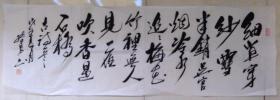 細草穿
沙雪
半銷吳宮
烟冷水
迢迢梅花
竹裡無人
見一夜
吹香過
石橋